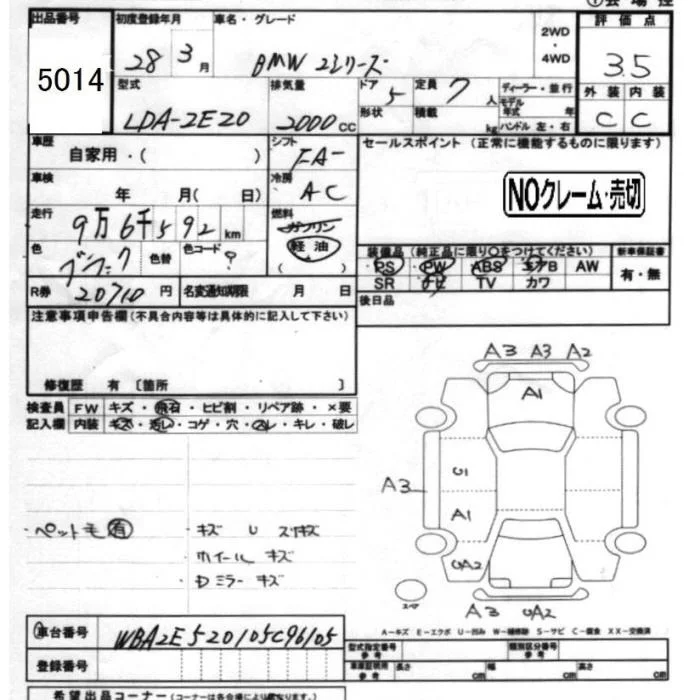 ①会場控
出品番号 初度登録年月 車名・グレード 評価点
5014 28 3月 BMW 2シリーズ 2WD・4WD 3.5
型式 排気量 ドア 5 定員 7人 ディーラー・並行 外装 内装
LDA-2E20 2000cc 形状 積載 kg モデル年式 年 ハンドル 左・右 C C
車歴 シフト FA- セールスポイント (正常に機能するものに限ります)
自家用・( )
車検 冷房 AC
年 月(日) NOクレーム・売切
走行 9万6千592km 燃料 ガソリン 軽油 ( )
色 ブラック 色替 色コード ? 装備品 (純正品に限り○をつけてください) 新車保証書
PS PW ABS エアB AW 有・無
SR ナビ TV カワ
R券 20710円 名変通知期限 月 日 後日品
注意事項申告欄(不具合内容等は具体的に記入して下さい)
修復歴 有 〔箇所 〕
検査員 FW キズ・飛石・ヒビ割・リペア跡・×要
記入欄 内装 キズ・汚レ・コゲ・穴・スレ・キレ・破レ
A3 A3 A2
A1
U1
A3
A1
UA2
A3 UA2
スペア
・ペット毛 有
・キズ U スリキズ
・ホイール キズ
・Dミラー キズ
A－キズ E－エクボ U－凹み W－補修跡 S－サビ C－腐食 XX－交換済
車台番号 WBA2E520105C96105
型式指定番号 参考 類別区分番号 参考
登録番号 車庫証明用 参考 長さ cm 幅 cm 高さ cm
希望出品コーナー(コーナーは各会場により異なります。)